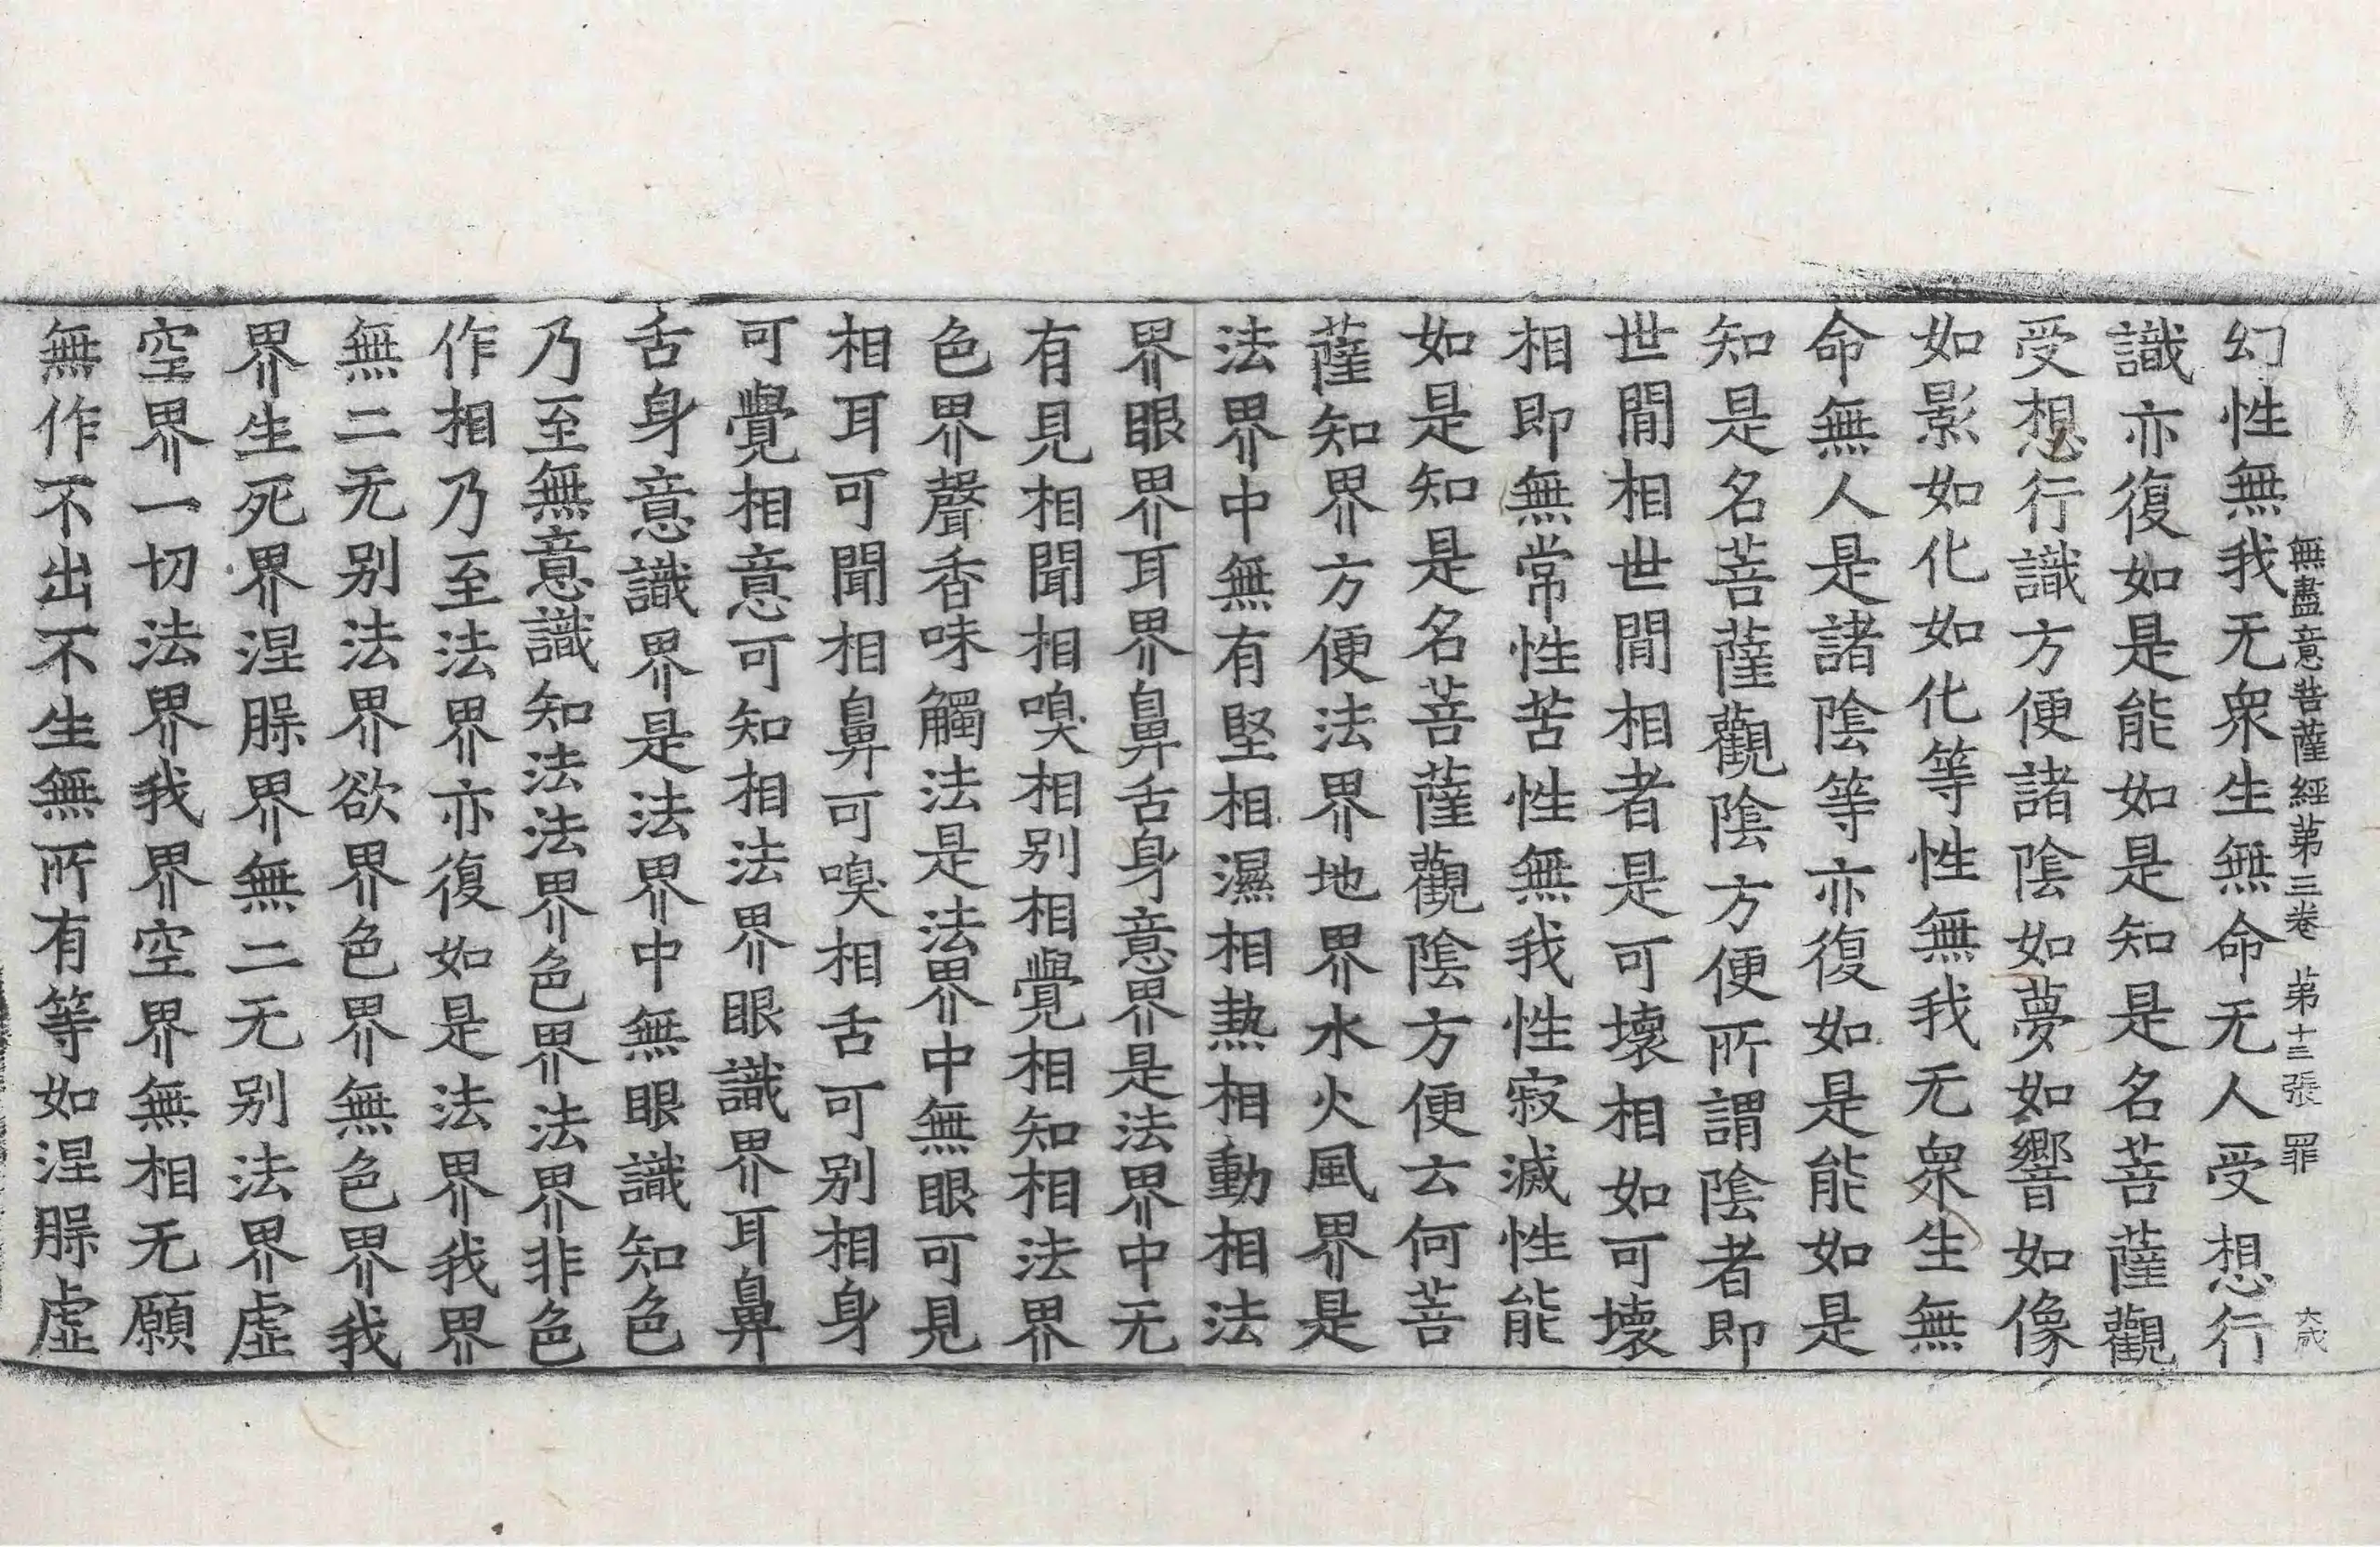 無盡意菩薩經第三卷 第十三張 罪 大成
幻性無我无衆生無命无人受想行
識亦復如是能如是知是名菩薩觀
受想行識方便諸陰如夢如響如像
如影如化如化等性無我无衆生無
命無人是諸陰等亦復如是能如是
知是名菩薩觀陰方便所謂陰者即
世間相世間相者是可壞相如可壞
相即無常性苦性無我性寂滅性能
如是知是名菩薩觀陰方便云何菩
薩知界方便法界地界水火風界是
法界中無有堅相濕相熱相動相法
界眼界耳界鼻舌身意界是法界中无
有見相聞相嗅相別相覺相知相法界
色界聲香味觸法是法界中無眼可見
相耳可聞相鼻可嗅相舌可別相身
可覺相意可知相法界眼識界耳鼻
舌身意識界是法界中無眼識知色
乃至無意識知法法界色界法界非色
作相乃至法界亦復如是法界我界
無二无别法界欲界色界無色界我
界生死界涅槃界無二无别法界虛
空界一切法界我界空界無相无願
無作不出不生無所有等如涅槃虛